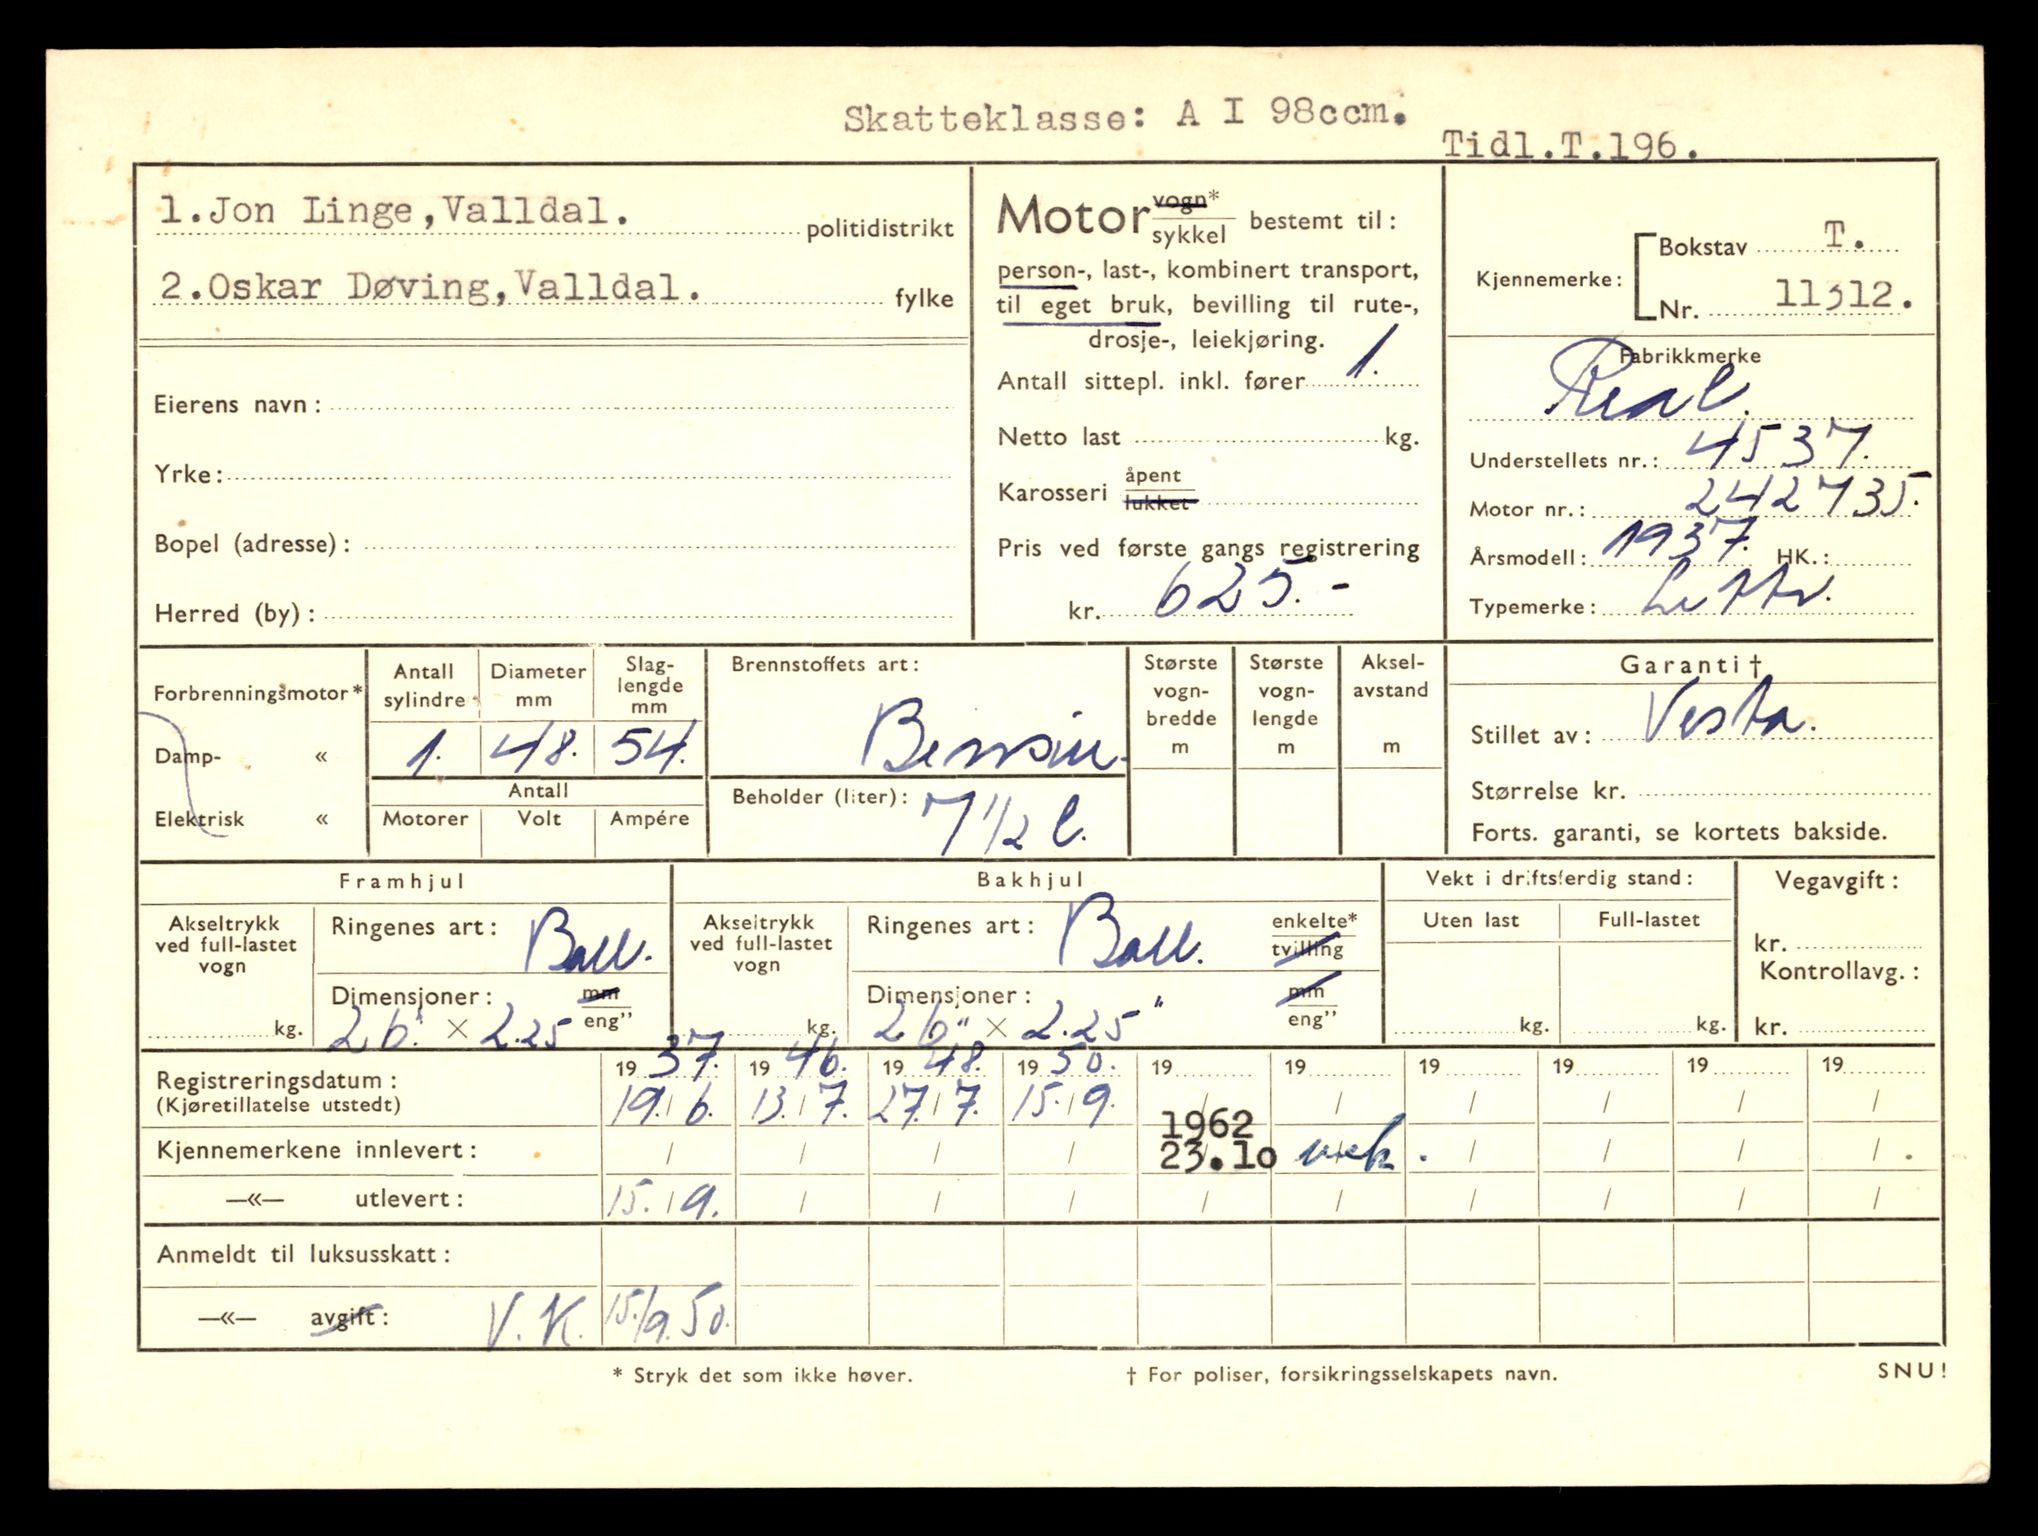 Skatteklasse: A I 98ccm.
Tidl.T.196.
1.Jon Linge,Valldal. politidistrikt
2.Oskar Døving,Valldal. fylke
Eierens navn:
Yrke:
Bopel (adresse):
Herred (by):
Motor vogn* sykkel bestemt til:
person-, last-, kombinert transport,
til eget bruk, bevilling til rute-,
drosje-, leiekjøring.
Antall sittepl. inkl. fører 1.
Netto last kg.
Karosseri åpent lukket
Pris ved første gangs registrering
kr. 625.-
Kjennemerke: Bokstav T.
Nr. 11312.
Fabrikkmerke
Real.
Understellets nr.: 4537.
Motor nr.: 242735.
Årsmodell: 1937. HK.:
Typemerke: Lettv.
Forbrenningsmotor*
Damp- «
Elektrisk «
Antall sylindre 1.
Diameter mm 48.
Slaglengde mm 54.
Antall
Motorer Volt Ampére
Brennstoffets art:
Bensin.
Beholder (liter): 7 1/2 l.
Største vognbredde m
Største vognlengde m
Akselavstand m
Garanti†
Stillet av: Vesta.
Størrelse kr.
Forts. garanti, se kortets bakside.
Framhjul
Akseltrykk ved full-lastet vogn kg.
Ringenes art: Ball.
Dimensjoner: mm eng”
26" × 2.25
Bakhjul
Akseltrykk ved full-lastet vogn kg.
Ringenes art: Ball. enkelte* tvilling
Dimensjoner: mm eng”
26" × 2.25"
Vekt i driftsferdig stand:
Uten last Full-lastet
kg. kg.
Vegavgift:
kr.
Kontrollavg.:
kr.
19 37. 19 46. 19 48. 19 50. 19 19 19 19 19 19
Registreringsdatum: 19./6. 13./7. 27./7. 15./9. / / / / / /
(Kjøretillatelse utstedt)
1962
Kjennemerkene innlevert: / / / / 23.10 vrak. / / / /
—«— utlevert: 15./9. / / / / / / / / /
Anmeldt til luksusskatt:
—«— avgift: V.K. 15./9.50.
* Stryk det som ikke høver. † For poliser, forsikringsselskapets navn. SNU!